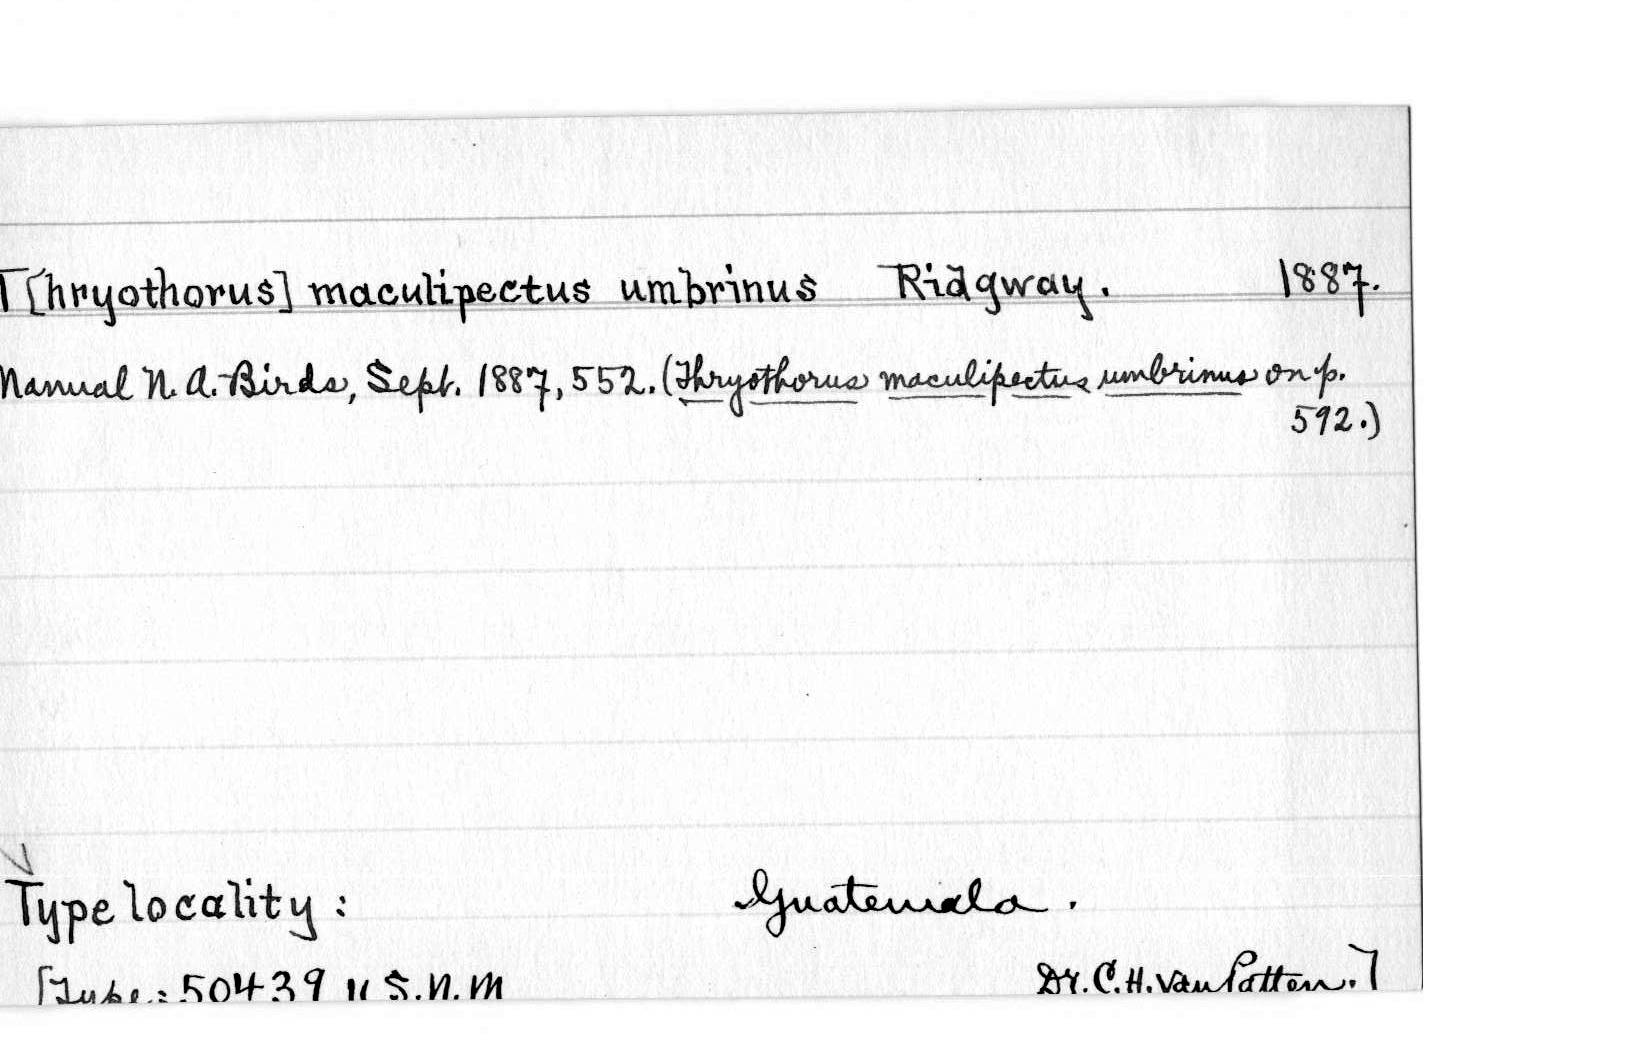 T[hryothorus] maculipectus umbrinus Ridgway. 1887.
Manual N. A. Birds, Sept. 1887, 552. (Thryothorus maculipectus umbrinus on p.
592.)
Type locality: Guatemala.
[Type: 50439 U.S.N.M Dr. C. H. Van Patten.]